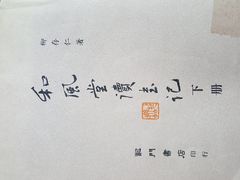 柳存仁 著
和風堂讀書记 下册
龍門書店 印行